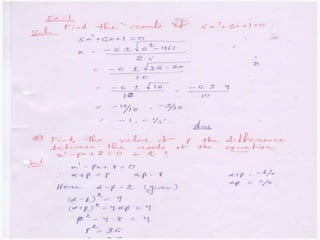 Ex-1
Find the roots of 5x²+6x+1=0
Soln. 5x²+6x+1=0
x = -6 ± √6²-4·5·1
2·5
= -6 ± √36-20
10
= -6 ± √16 = -6 ± 4
10 10
= -10/10 , -2/10
= -1, -1/5. Ans
② Find the value of p the difference
between the roots of the equation
x²-px+8=0 is 2?
Sol. x²-px+8=0
∴ α+β=p αβ=8 α+β = -b/a
Here α-β=2 (given) αβ = c/a
(α-β)²=4
(α+β)²-4αβ=4
p²-4·8=4
p²=36